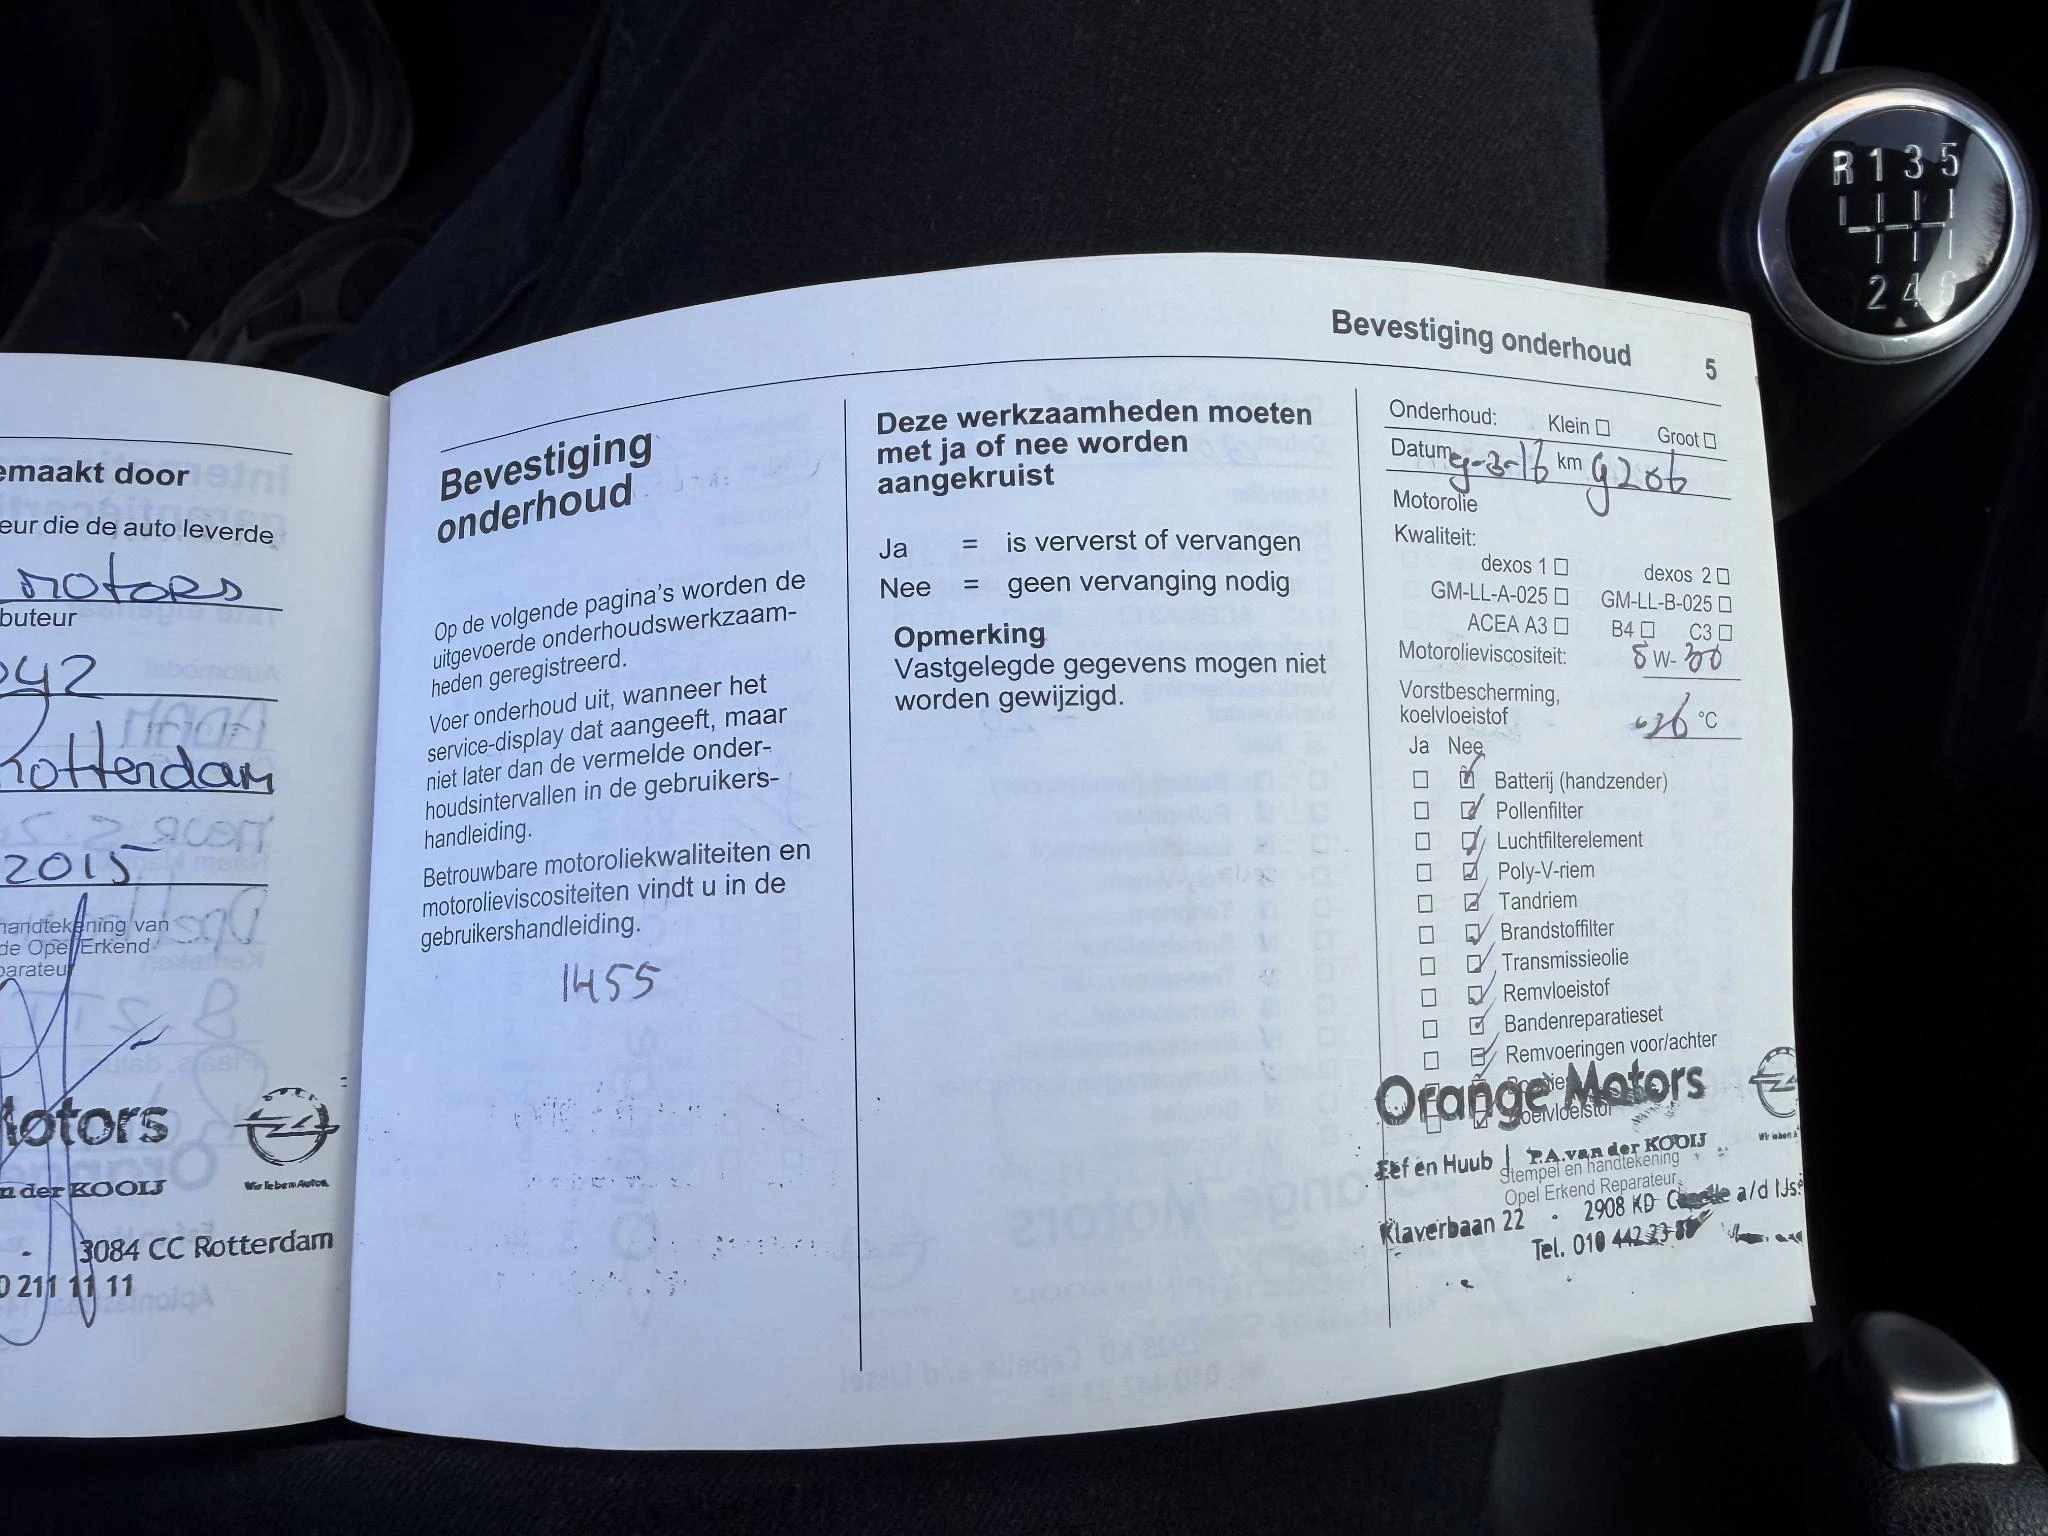 emaakt door
eur die de auto leverde
motors
buteur
042
Rotterdam
2015
handtekening van
de Opel Erkend
parateur
Motors
n der KOOIJ
Wir leben Autos.
- 3084 CC Rotterdam
0 211 11 11
Bevestiging onderhoud 5
Bevestiging
onderhoud
Op de volgende pagina's worden de
uitgevoerde onderhoudswerkzaam-
heden geregistreerd.
Voer onderhoud uit, wanneer het
service-display dat aangeeft, maar
niet later dan de vermelde onder-
houdsintervallen in de gebruikers-
handleiding.
Betrouwbare motoroliekwaliteiten en
motorolieviscositeiten vindt u in de
gebruikershandleiding.
1455
Deze werkzaamheden moeten
met ja of nee worden
aangekruist
Ja = is ververst of vervangen
Nee = geen vervanging nodig
Opmerking
Vastgelegde gegevens mogen niet
worden gewijzigd.
Onderhoud: Klein Groot
Datum 9-3-16 km 9206
Motorolie
Kwaliteit:
dexos 1 dexos 2
GM-LL-A-025 GM-LL-B-025
ACEA A3 B4 C3
Motorolieviscositeit: 5 W- 30
Vorstbescherming,
koelvloeistof -36 °C
Ja Nee
Batterij (handzender)
Pollenfilter
Luchtfilterelement
Poly-V-riem
Tandriem
Brandstoffilter
Transmissieolie
Remvloeistof
Bandenreparatieset
Remvoeringen voor/achter
Orange Motors
Koelvloeistof
Eef en Huub | P.A. van der KOOIJ
Stempel en handtekening
Opel Erkend Reparateur
Klaverbaan 22 - 2908 KD a/d IJs
Tel. 010 442 23
R 1 3 5
2 4 6